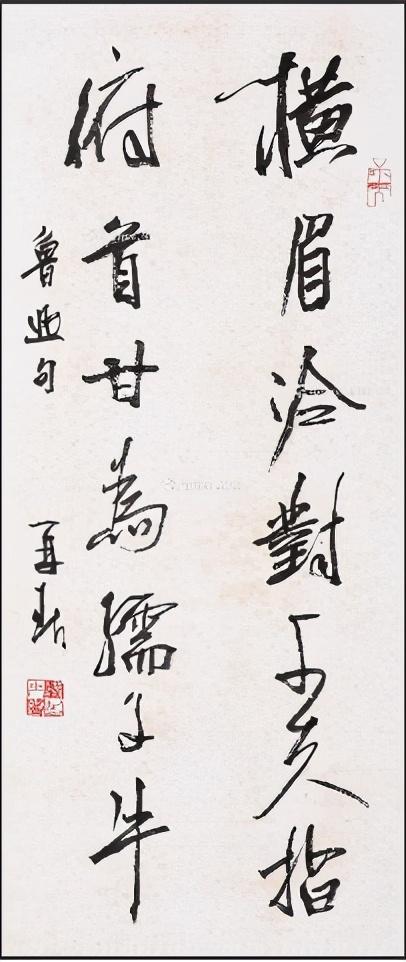 橫眉冷對千夫指
俯首甘為孺子牛
魯迅句